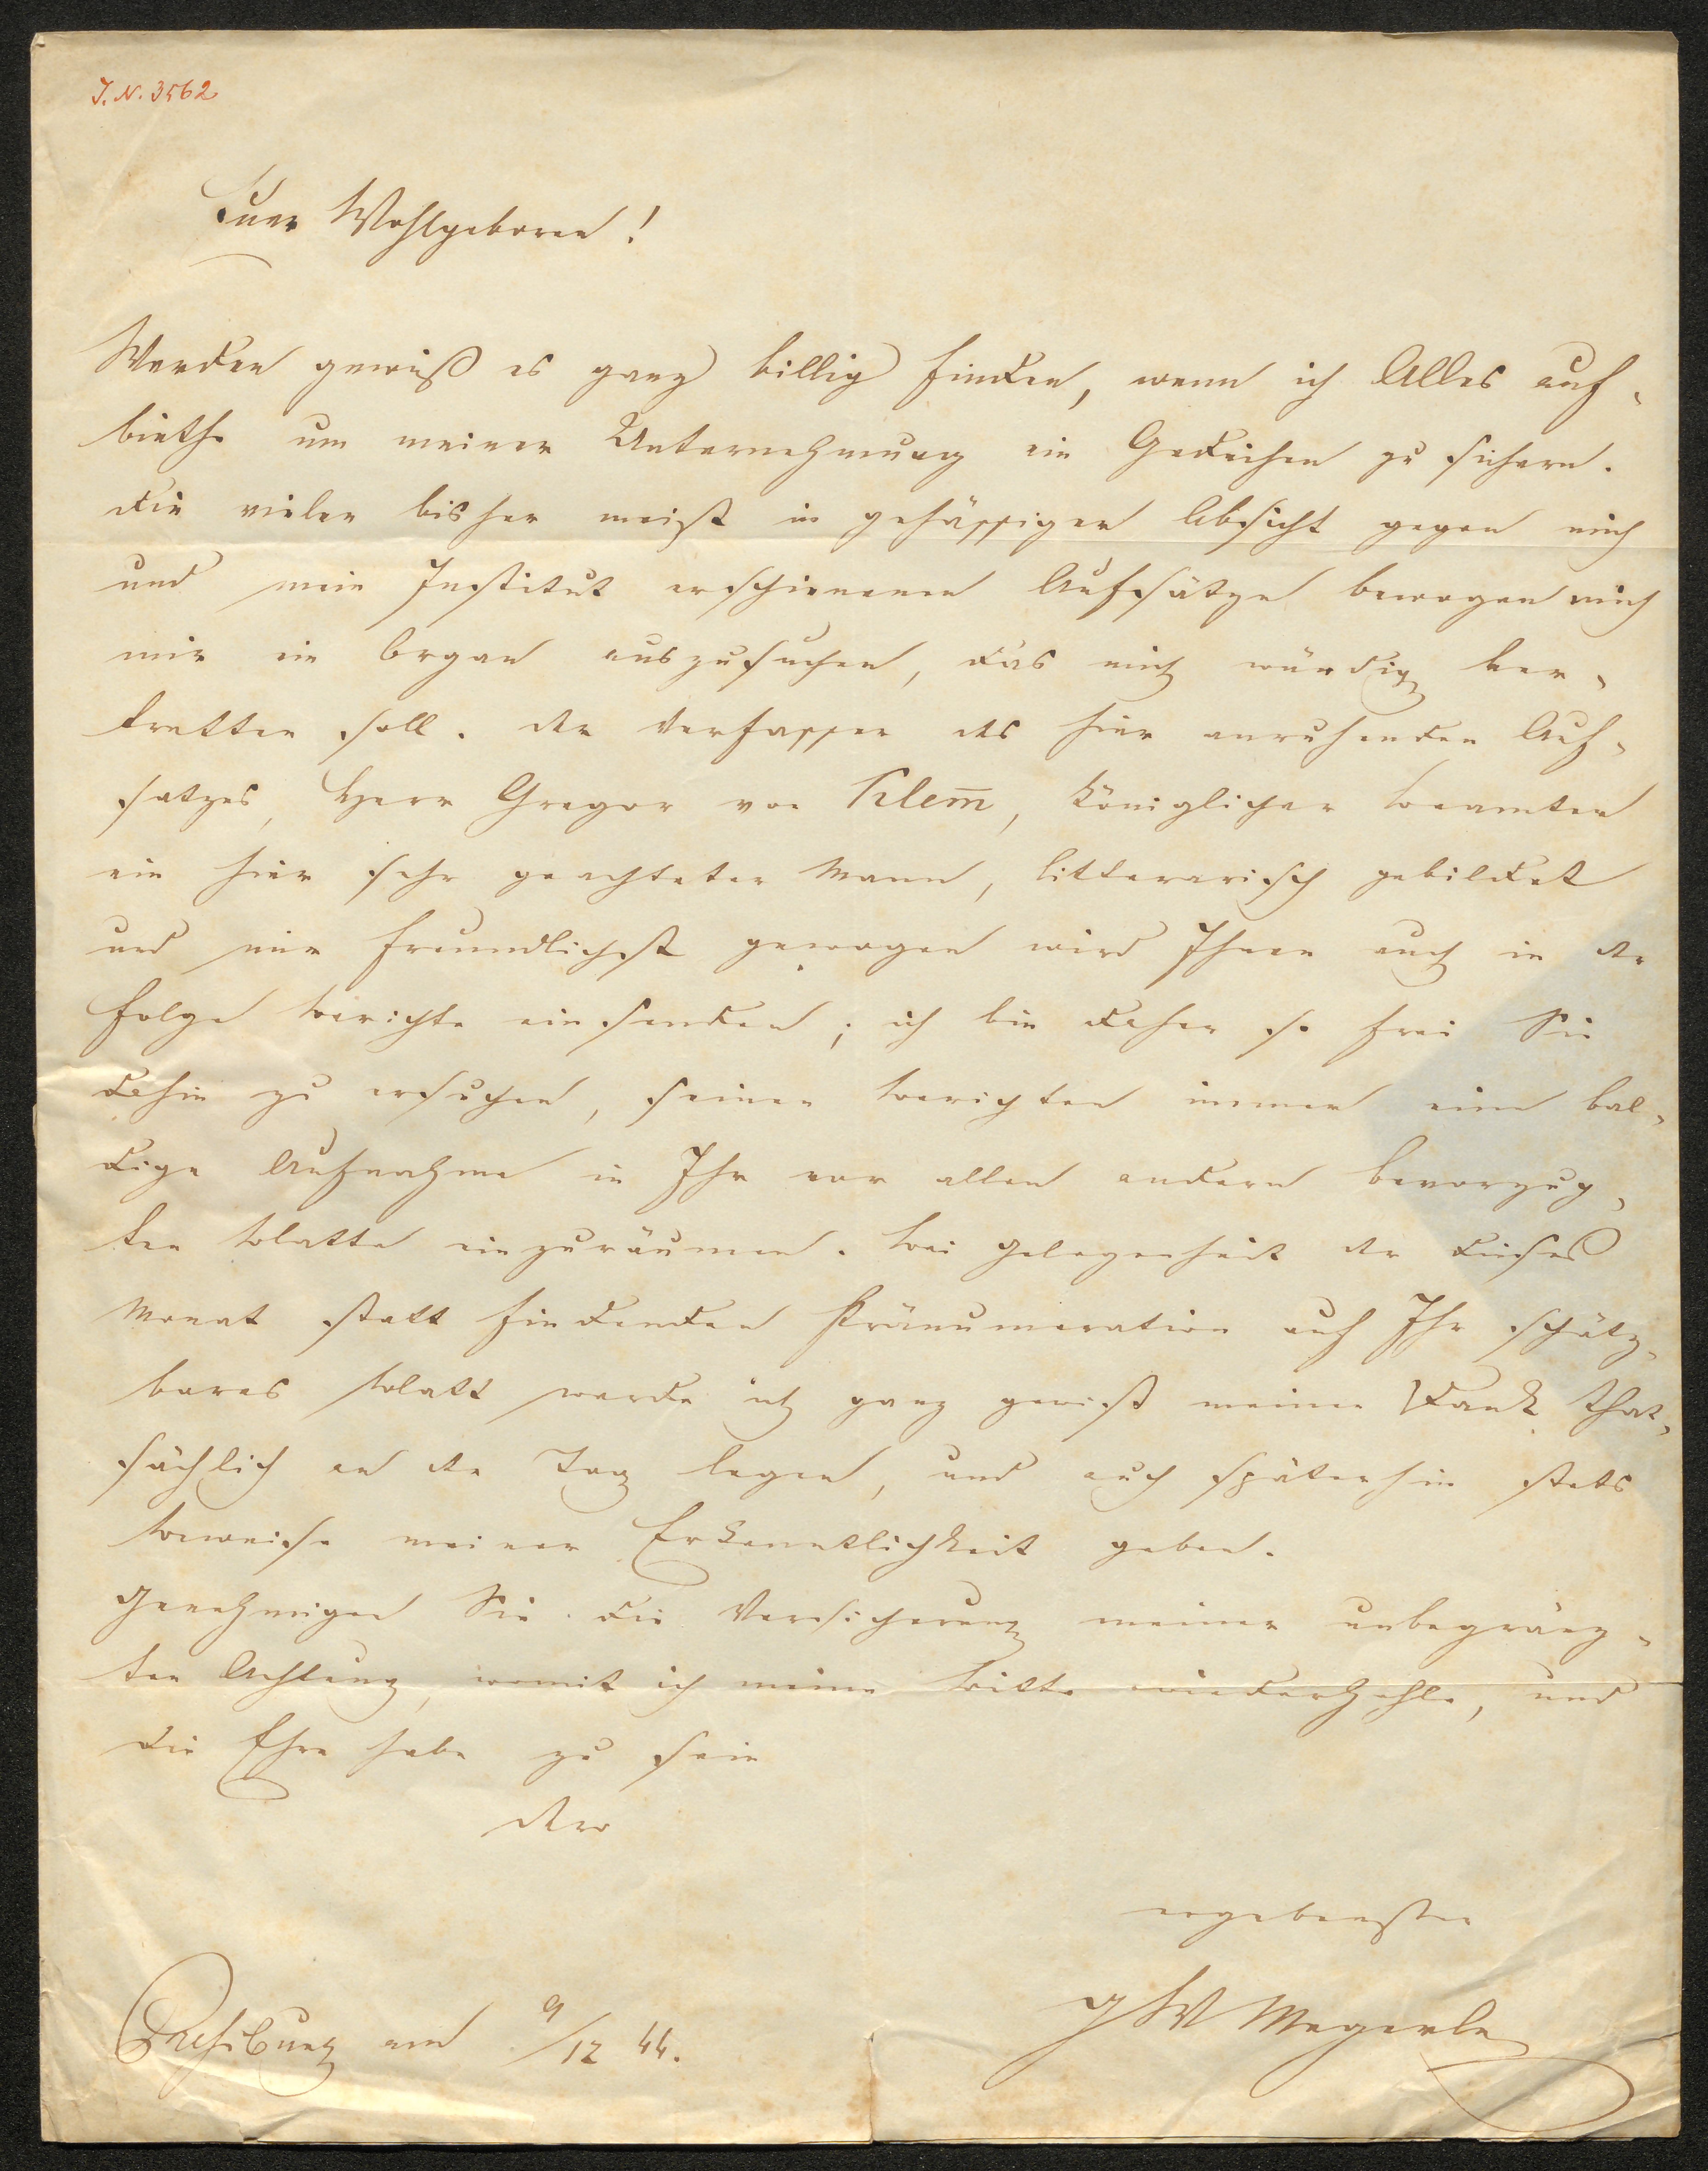 J. N. 3562
Euer Wohlgeboren!
Werden gewiß es ganz billig finden, wenn ich Alles auf-
biethe um meiner Unternehmung ein Gedeihen zu sichern.
die vielen bisher meist in gehässiger Absicht gegen mich
und mein Institut erschienenen Aufsätze bewogen mich
mir ein Organ auszusuchen, das mich würdig ver-
tretten soll. der Verfasser des hier anruhenden Auf-
satzes, Herr Gregor von Klem̄, königlicher Beamter
ein hier sehr geachteter Mann, litterarisch gebildet
und mir freundlichst gewogen wird Ihnen auch in der
Folge Berichte einsenden; ich bin daher so frei Sie
dahin zu ersuchen, seinen Berichten immer eine bal-
dige Aufnahme in Ihr vor allen andern bevorzug-
ten Blatte einzuräumen. Bei Gelegenheit der dieses
Monat statt findenden Pränumeration auf Ihr schätz-
bares Blatt werde ich ganz gewiß meinen Dank that-
sächlich an den Tag legen, und auch späterhin stets
Beweise meiner Erkenntlichkeit geben.
Genehmigen Sie die Versicherung meiner unbegränz-
ten Achtung, womit ich meine Bitte wiederhohle, und
die Ehre habe zu sein
dero
ergebenster
J W Megerle
Preßburg am 9/12 44.